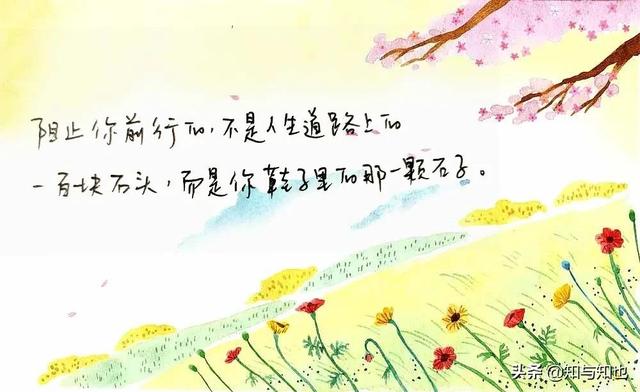 阻止你前行的,不是人生道路上的
一百块石头,而是你鞋子里的那一颗石子。
头条 @知与知也